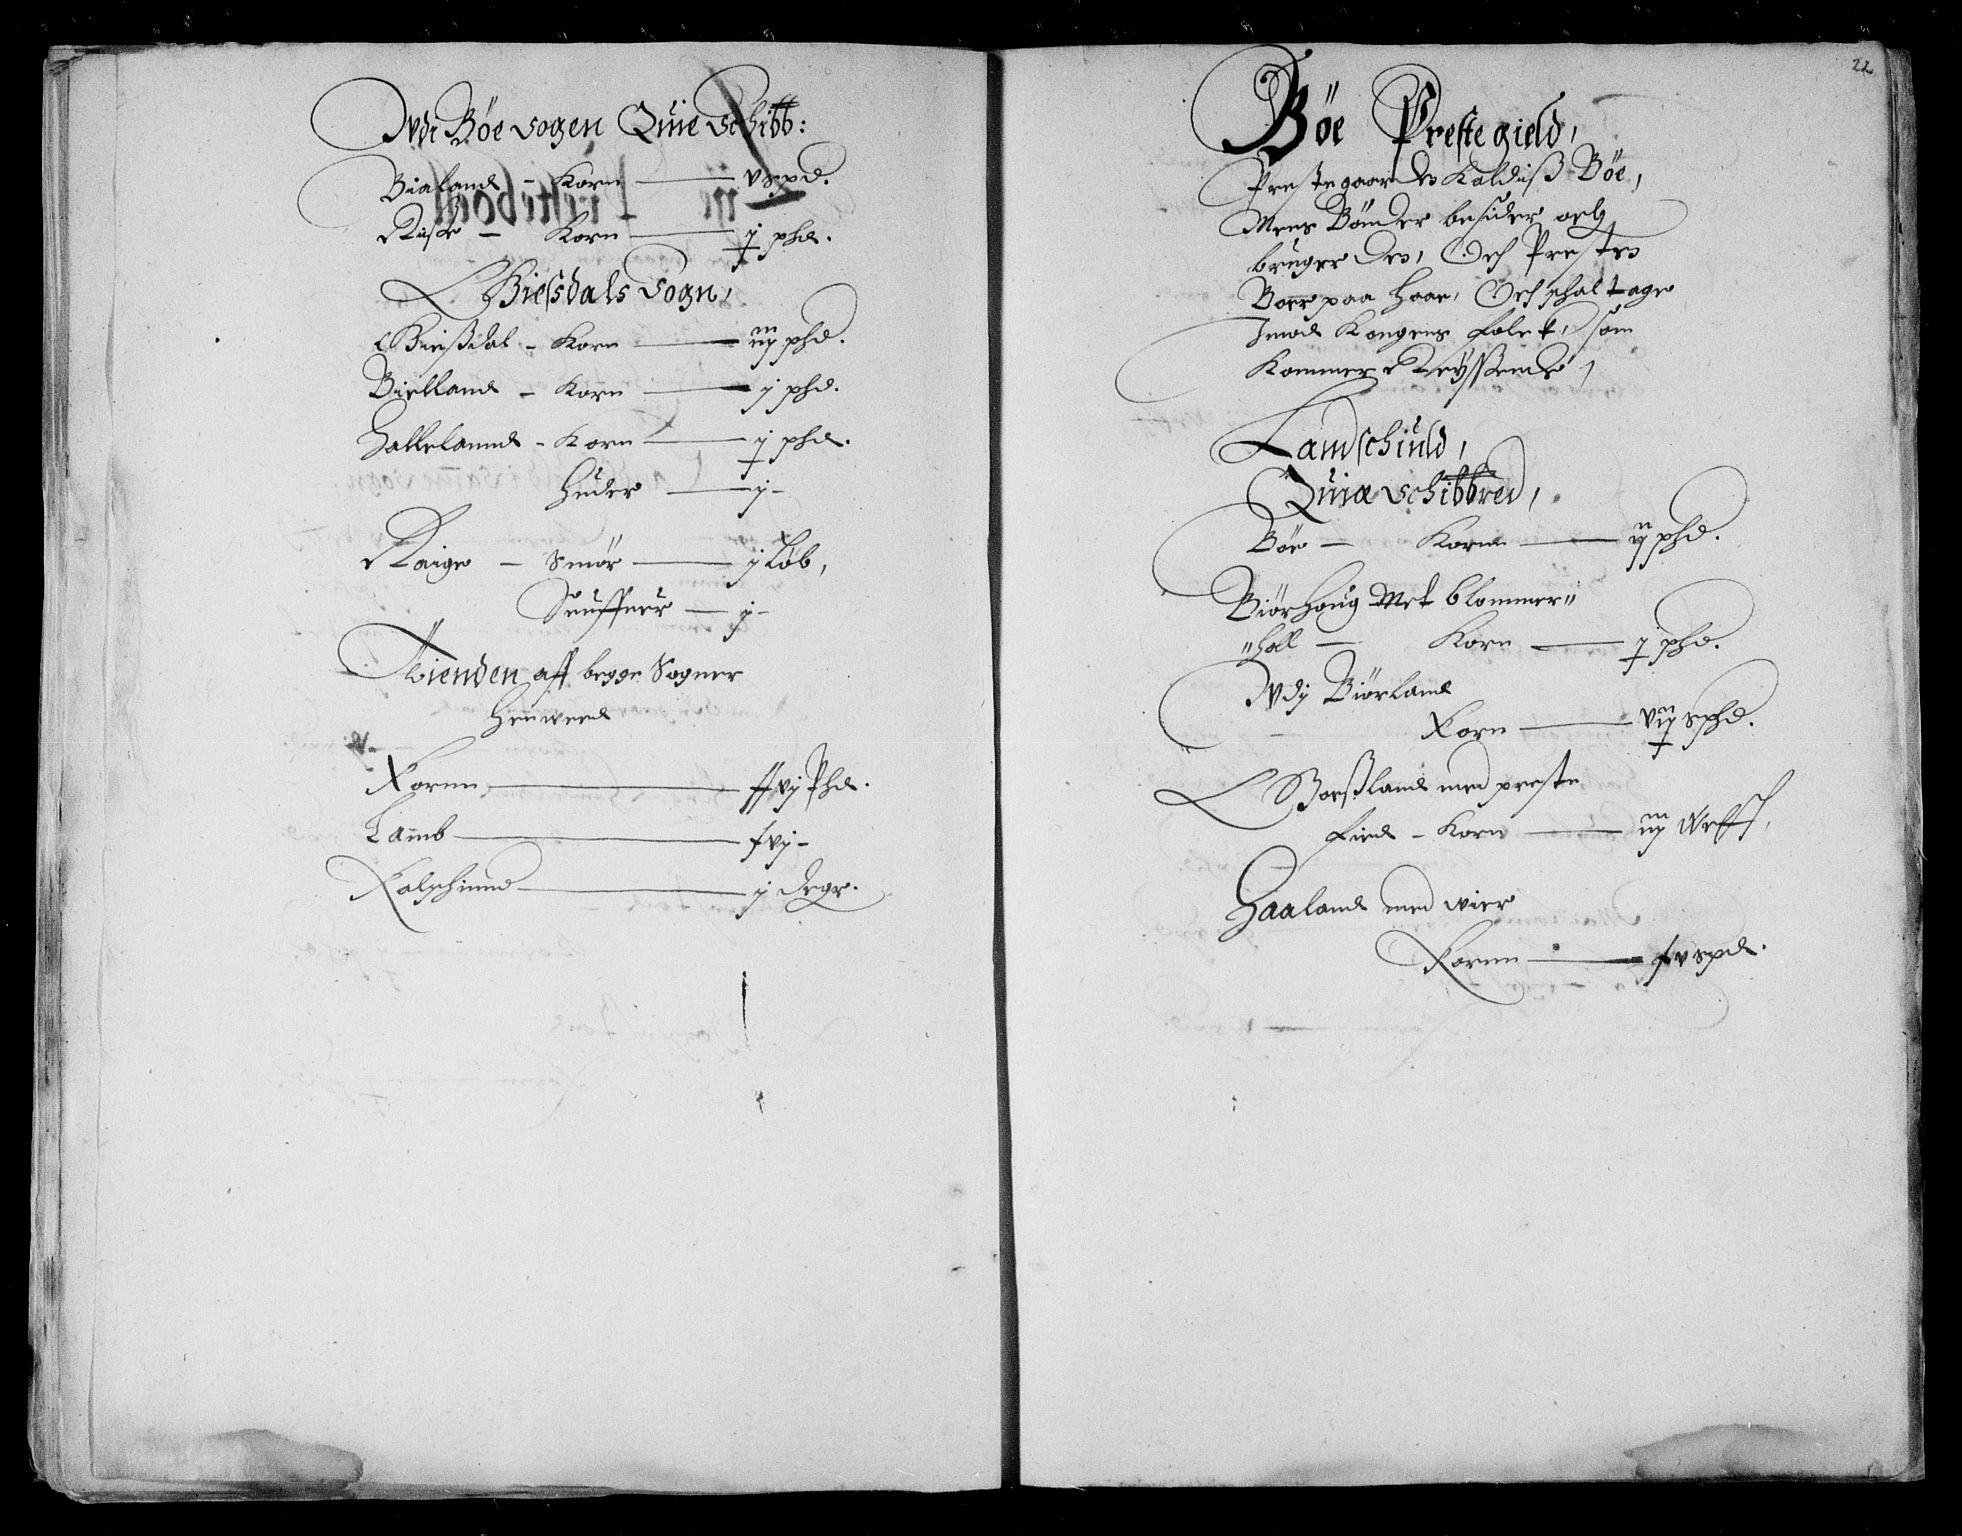 Udi Böe sogen Quie Schibb:
Bialand - Korn — v spd.
Risse - Korn — j phd.
Giessdals Sogn,
Giessdal - Korn — iiij phd.
Bielland - Korn — j phd.
Hallelannd - Korn — j phd.
Huder — j -
Raige - Smör — j Löb,
Snuffner — j -
Tienden aff begge Sogner
Henwed
Kornn — xxvj Phd.
Lamb — xvj -
Kalschinnd — j degr.
22
Böe Prestegield,
Prestegaarden Kaldiss Böe,
Mens Bönder besider och
bruger den, Och Presten
Boer paa Haae, Och schal tage
Imod Kongens Folck, som
Kommer Reyssende,
Landschiuld,
Quiæ schibbred,
Böe — Kornn — iij phd.
Biörhoug Met blommer"
"holl — Korn — j phd.
Udj Biörland
Korn — viij sphd.
Goessland med preste
Fied - Korn — iiij Weff,
Haaland med wier
Kornn — xv spd.